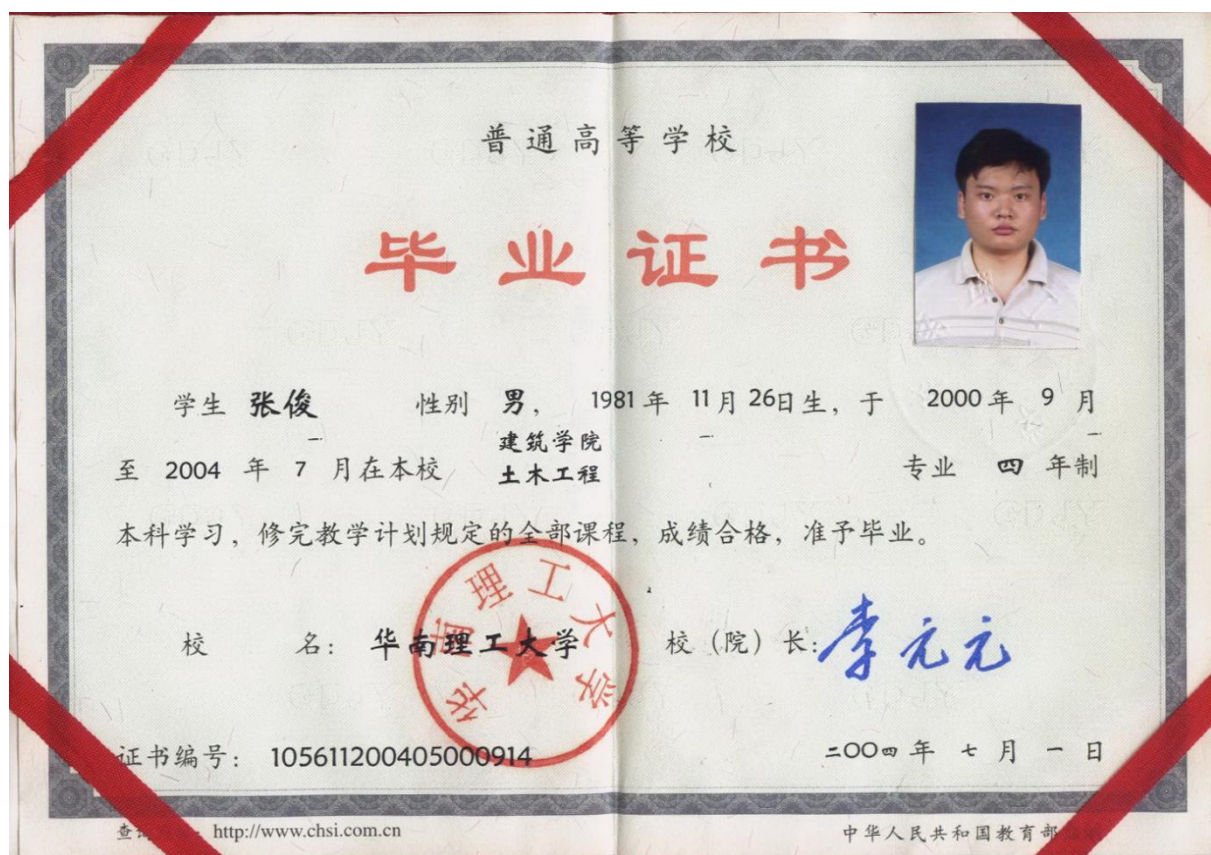 普通高等学校
毕业证书
学生 张俊 性别 男, 1981年 11月26日生, 于 2000年 9月
建筑学院
至 2004 年 7 月在本校 土木工程 专业 四 年制
本科学习, 修完教学计划规定的全部课程, 成绩合格, 准予毕业。
华南理工大学
校 名: 华南理工大学 校 (院) 长: 李元元
证书编号: 105611200405000914 二〇〇四年 七月 一日
http://www.chsi.com.cn 中华人民共和国教育部